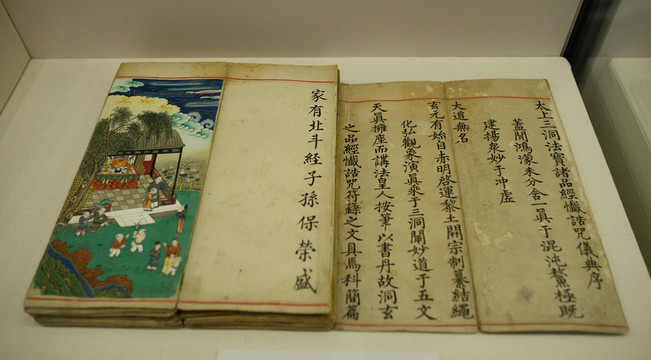 太上三洞法寶諸品經懺誥咒儀典序
蓋聞鴻濛未分含一眞于混沌鰲極旣
建揚衆妙于冲虛
大道無名
玄元有始自赤明啓運黎土開宗制纂結繩
化弘觀象演眞乘于三洞闡妙道于五文
天眞擁座而講法皇人按筆以書丹故洞玄
之品經懺誥咒符籙之文具焉科簡篇
家有北斗經子孫保榮盛